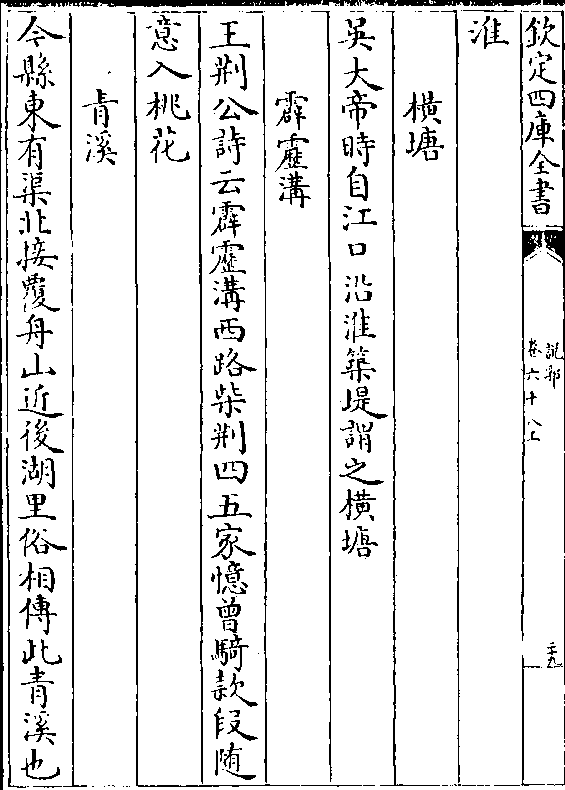 欽定四庫全書
說郛
卷六十八上
二十九
淮
橫塘
吳大帝時自江口沿淮築堤謂之橫塘
霹靂溝
王荆公詩云霹靂溝西路柴荆四五家憶曾騎款段随
意入桃花
青溪
今縣東有渠北接覆舟山近後湖里俗相傳此青溪也